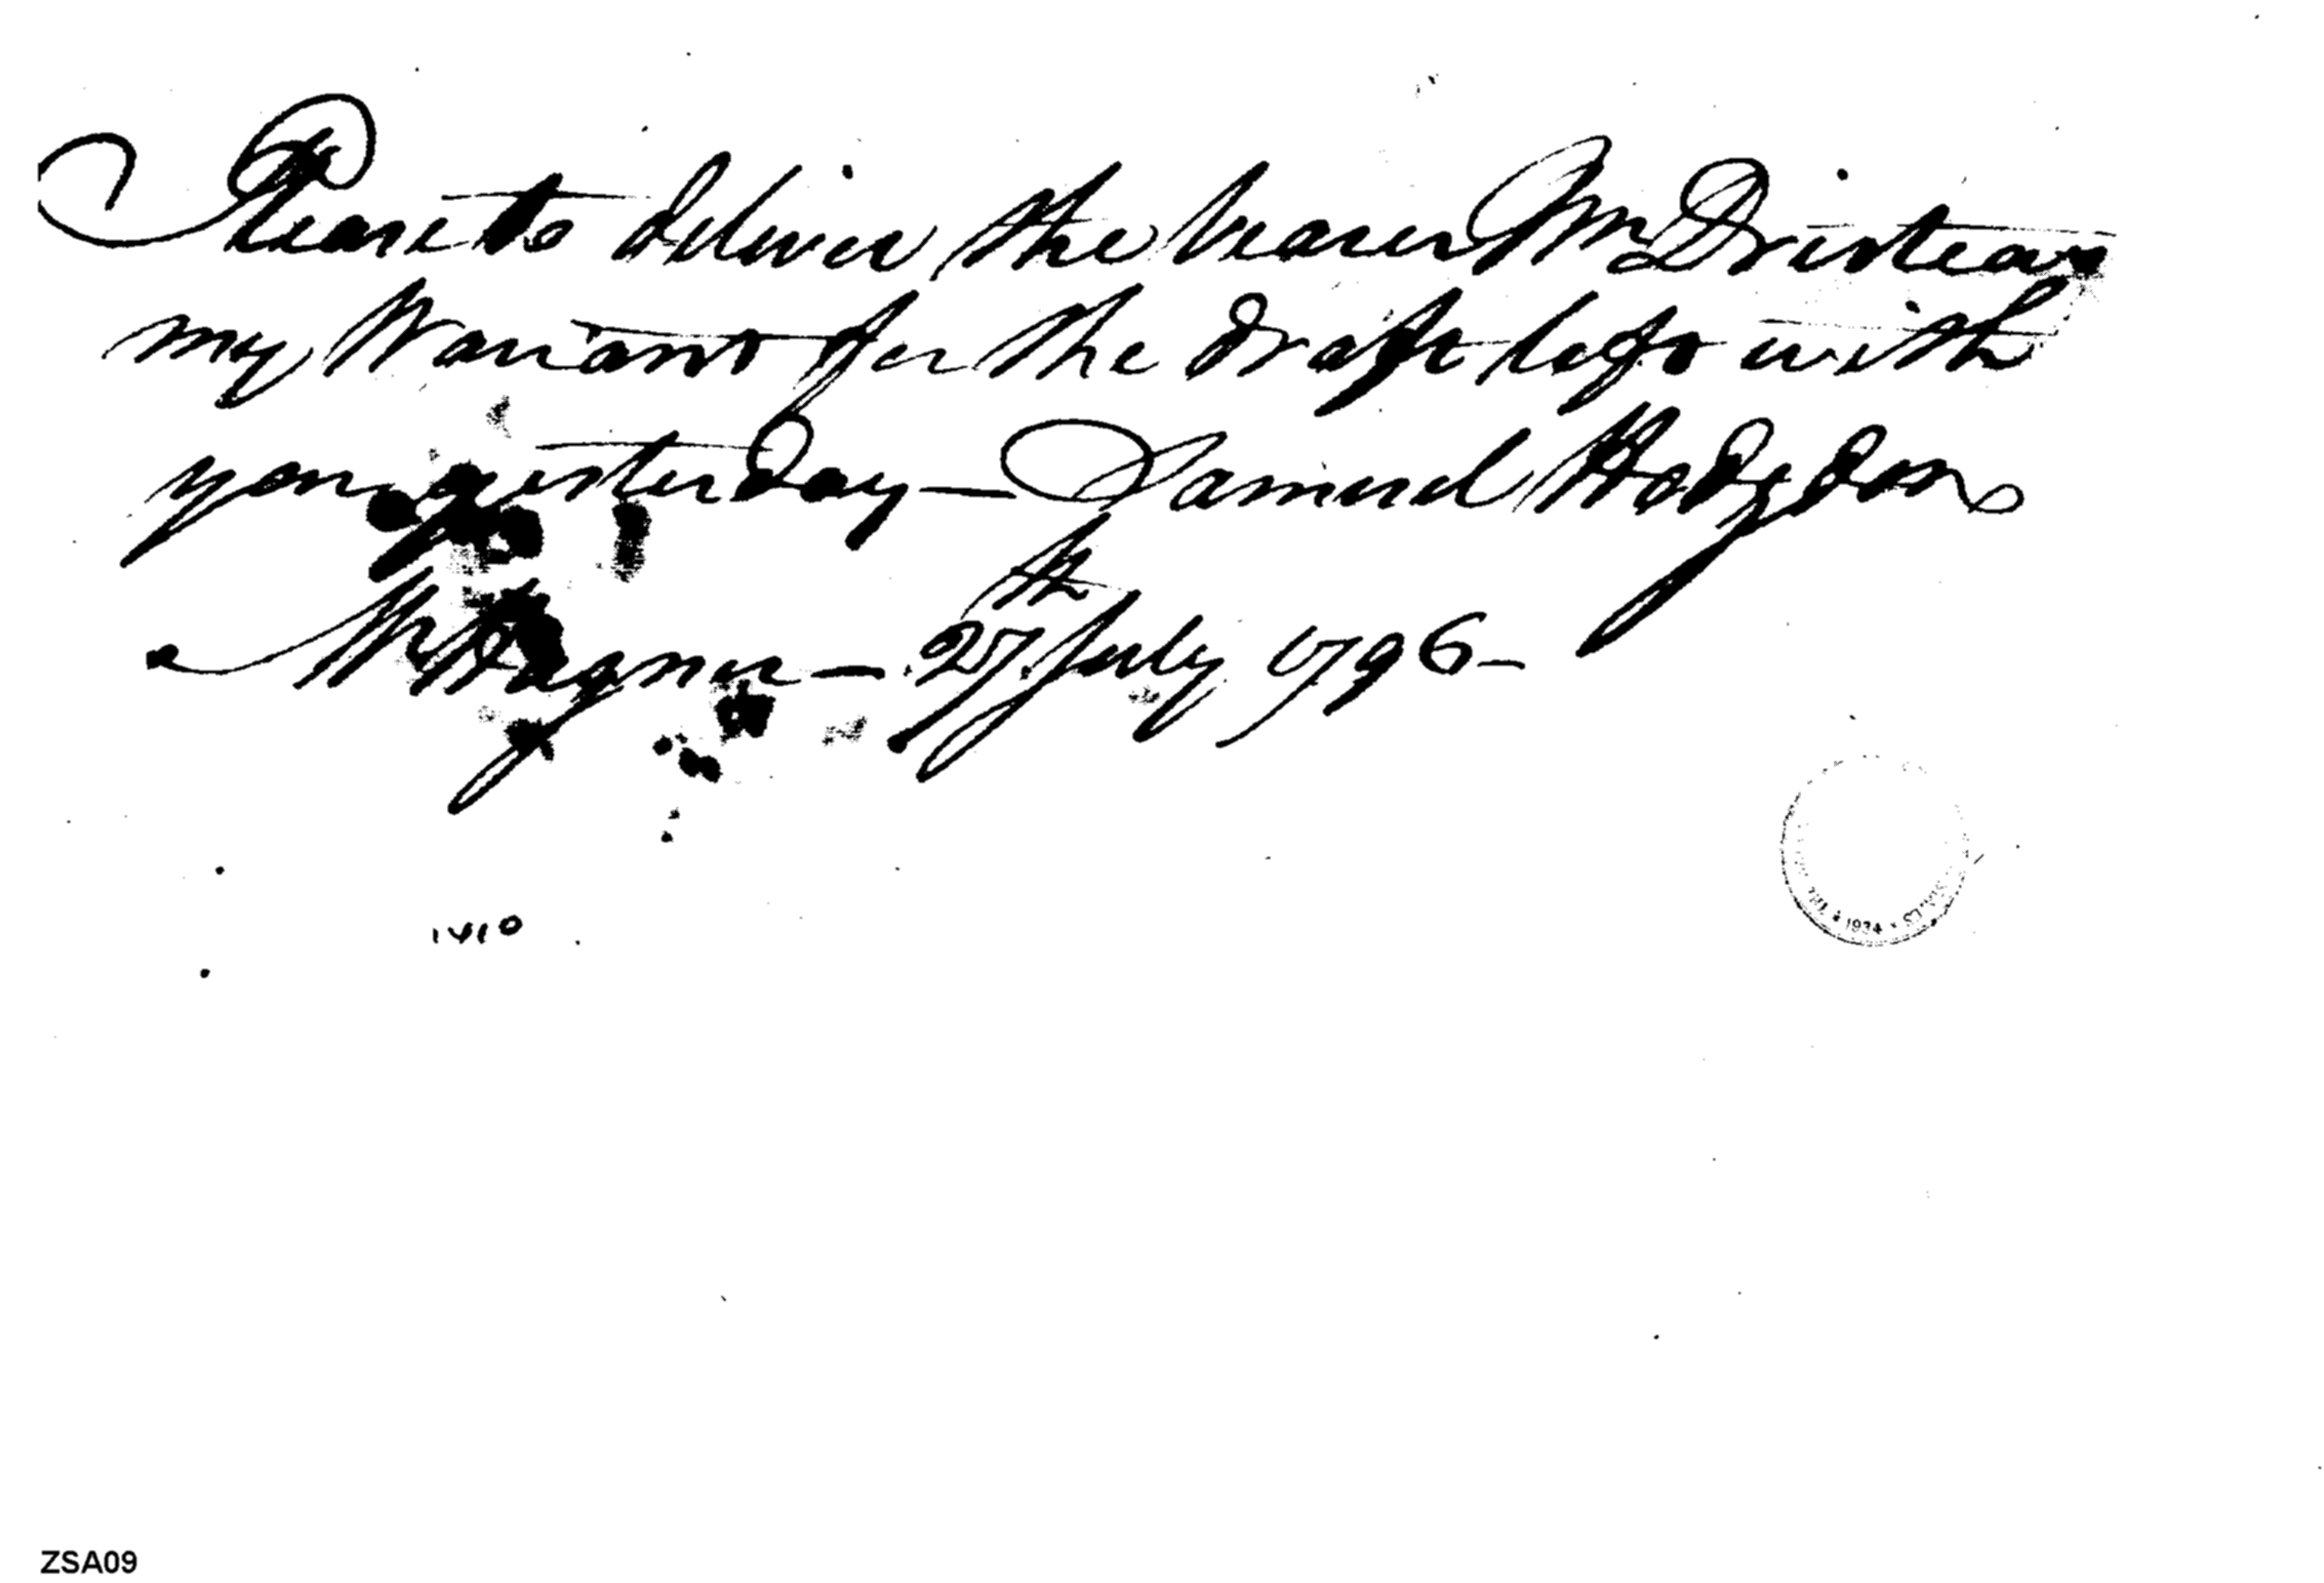 Please to deliver the bearer Mr
my Warrant for the draft left with
you yesterday — Samuel Hodgdon
27th July 1796 —
1710
1934
ZSA09